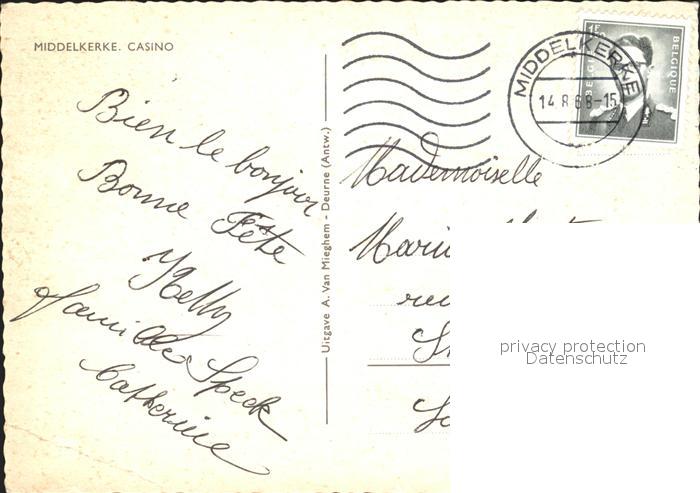 MIDDELKERKE. CASINO
Bien le bonjour
Bonne Fête
Famille Speck
Catherine
Uitgave A. Van Mieghem - Deurne (Antw.)
MIDDELKERKE
14 8 68-15
BELGIE
BELGIQUE
Mademoiselle
privacy protection
Datenschutz